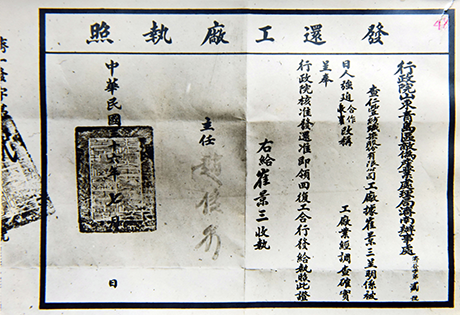 發還工廠執照
行政院山東青島區敵偽產業處理局濟南辦事處
查仁豐紡織染股份有限公司工廠據崔景三呈明係被
日人強迫合作改稱 工廠業經調查確實
呈奉
行政院核准發還准即領回復工合行發給執照此證
右給崔景三收執
主任 趙
中華民國 十六年 日